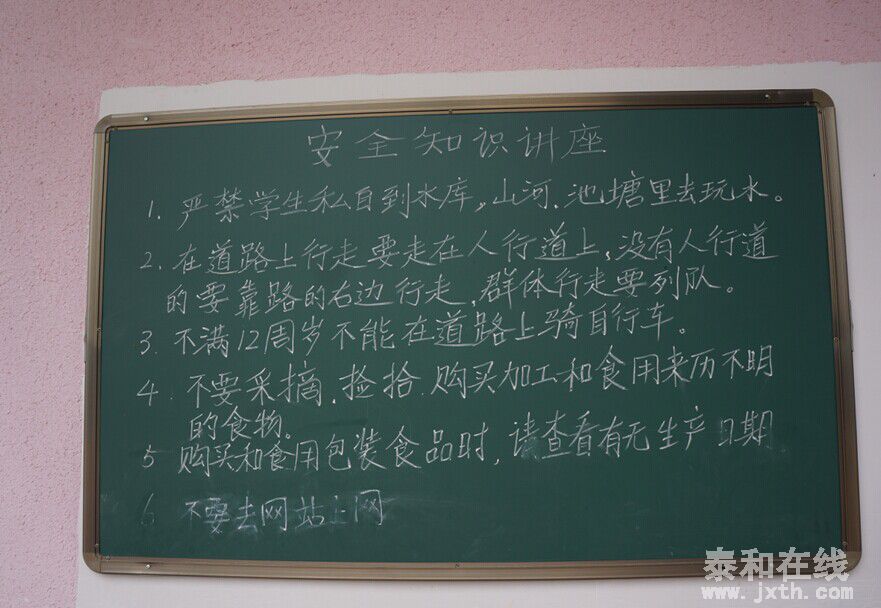 安全知识讲座
1. 严禁学生私自到水库,山河.池塘里去玩水。
2. 在道路上行走要走在人行道上,没有人行道
的要靠路的右边行走,群体行走要列队。
3. 不满12周岁不能在道路上骑自行车。
4. 不要采摘.捡拾.购买加工和食用来历不明
的食物。
5 购买和食用包装食品时,请查看有无生产日期
6 不要去网站上网
泰和在线
www.jxth.com